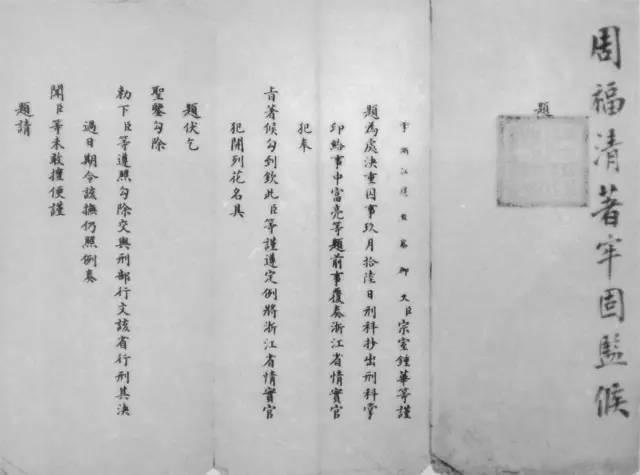 周福清著牢固監候
題
浙江道監察御史臣宗室鍾華等謹
題為處決重囚事玖月拾陸日刑科抄出刑科掌
印給事中富亮等題前事覆奏浙江省情實官
犯奉
旨著候勾到欽此臣等謹遵定例將浙江省情實官
犯開列花名具
題伏乞
聖鑒勾除
勅下臣等遵照勾除交與刑部行文該省行刑其決
過日期令該撫仍照例奏
聞臣等未敢擅便謹
題請